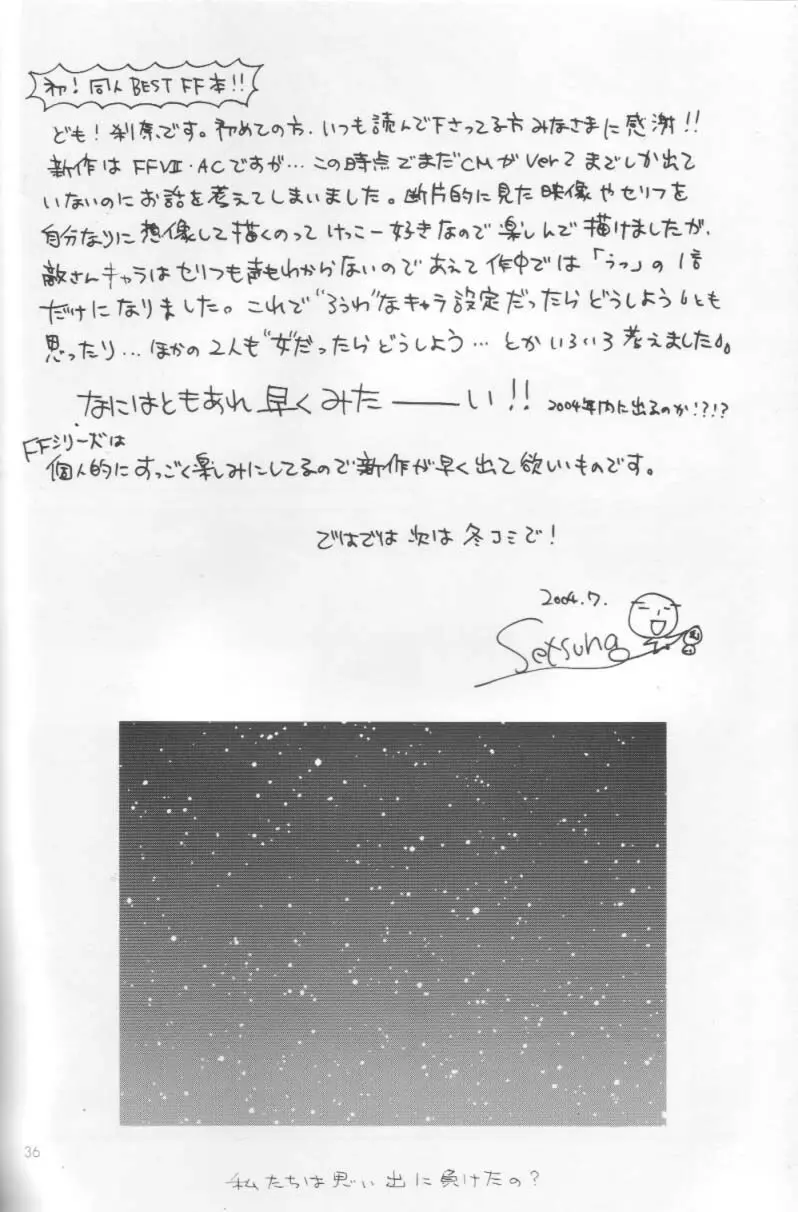 初！同人BEST FF本!!
ども！刹奈です。初めての方、いつも読んで下さってる方みなさまに感謝!!
新作はFFⅦ・ACですが…この時点でまだCMがVer2までしか出て
いないのにお話を考えてしまいました。断片的に見た映像やセリフを
自分なりに想像して描くのってけっこー好きなので楽しんで描けましたが、
敵さんキャラはセリフも声もわからないのであえて作中では「うっ」の1倍
だけになりました。これで“ろうわ”なキャラ設定だったらどうしようとも
思ったり…ほかの2人も“女”だったらどうしよう…とかいろいろ考えました。
なにはともあれ早くみたーーい!! 2004年内に出るのか!?!?
FFシリーズは
個人的にすっごく楽しみにしてるので新作が早く出て欲しいものです。
ではでは次は冬コミで！
2004.7.
Setsuna
36
私たちは思い出に負けたの？